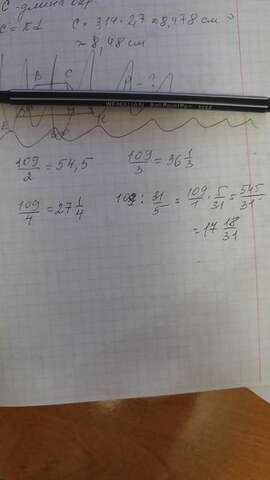 C - длина окр.
C = πd C = 3,14 · 2,7 ≈ 8,478 см ≈
≈ 8,48 см
B C
A - ?
B
K
109/2 = 54,5 109/3 = 36 1/3
109/4 = 27 1/4 109 : 31/5 = 109/1 · 5/31 = 545/31
= 17 18/31